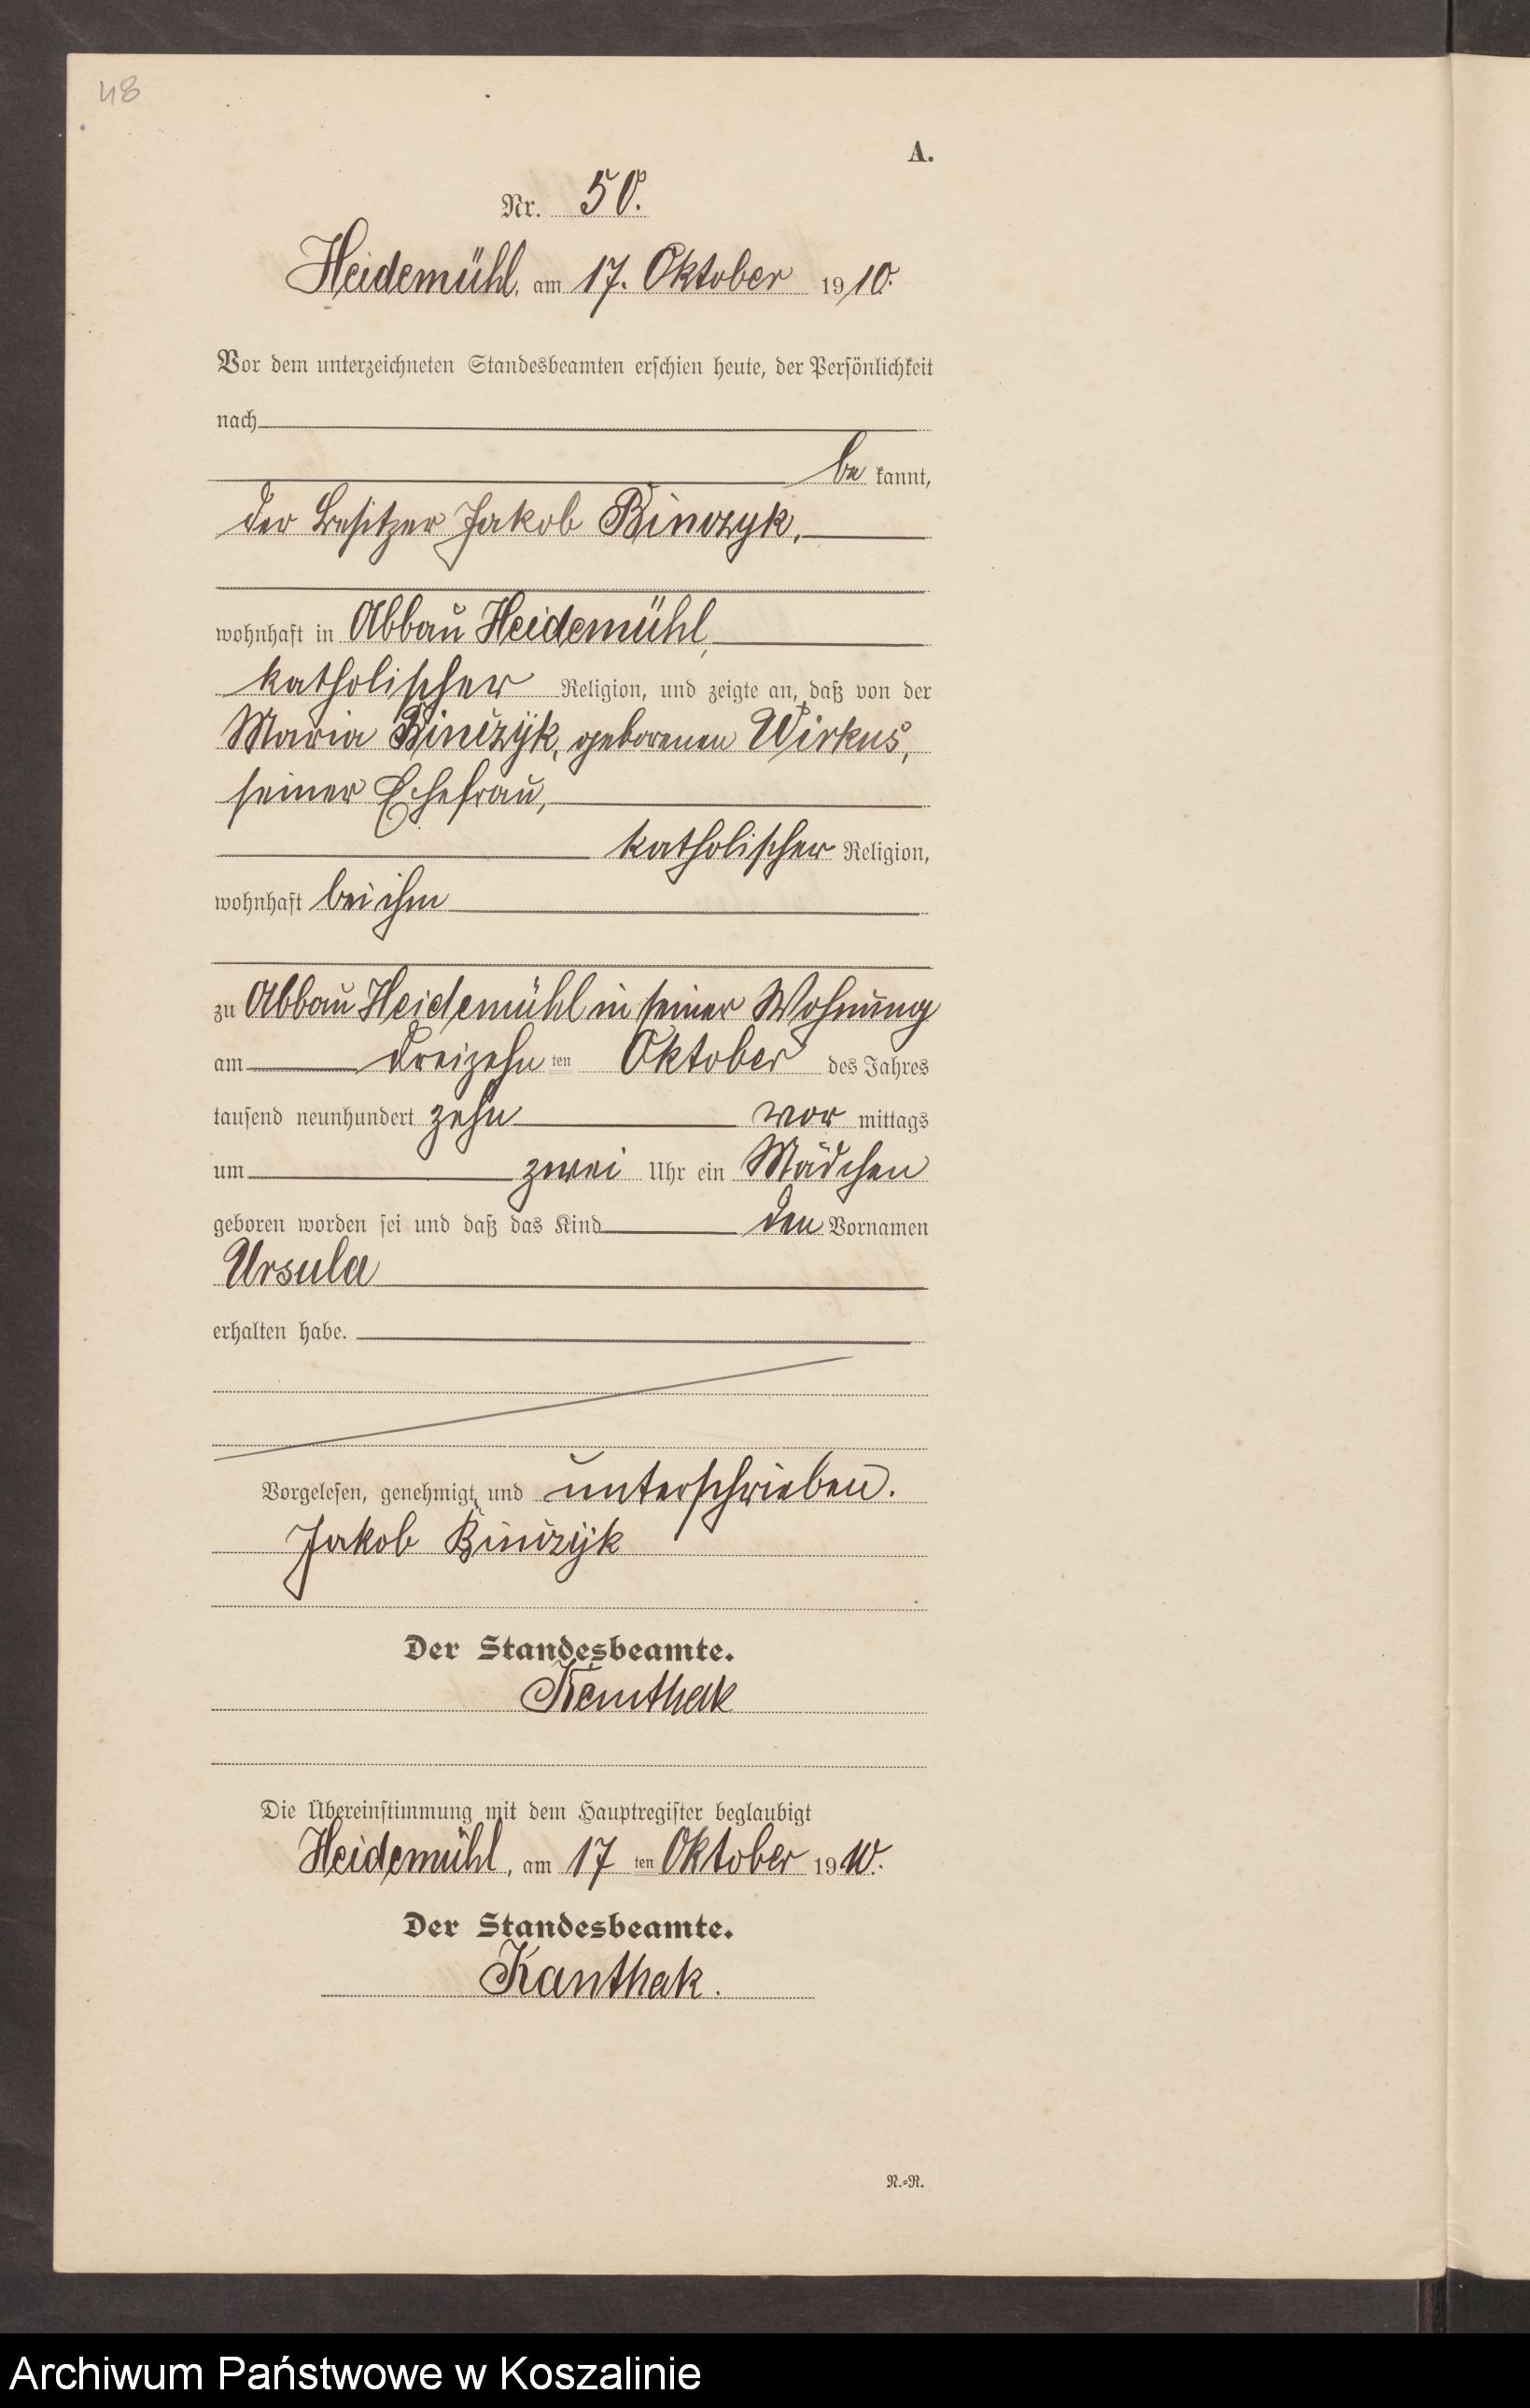 48
A.
Nr. 50.
Heidemühl, am 17. Oktober 1910.
Vor dem unterzeichneten Standesbeamten erschien heute, der Persönlichkeit
nach
be kannt,
der Besitzer Jakob Binczyk,
wohnhaft in Abbau Heidemühl,
katholischer Religion, und zeigte an, daß von der
Maria Binczyk, geborenen Wirkus,
seiner Ehefrau,
katholischer Religion,
wohnhaft bei ihm
zu Abbau Heidemühl in seiner Wohnung
am dreizehn ten Oktober des Jahres
tausend neunhundert zehn vor mittags
um zwei Uhr ein Mädchen
geboren worden sei und daß das Kind den Vornamen
Ursula
erhalten habe.
Vorgelesen, genehmigt und unterschrieben.
Jakob Binczyk
Der Standesbeamte.
Kanthak
Die Übereinstimmung mit dem Hauptregister beglaubigt
Heidemühl, am 17 ten Oktober 1910.
Der Standesbeamte.
Kanthak.
N.=N.
Archiwum Państwowe w Koszalinie